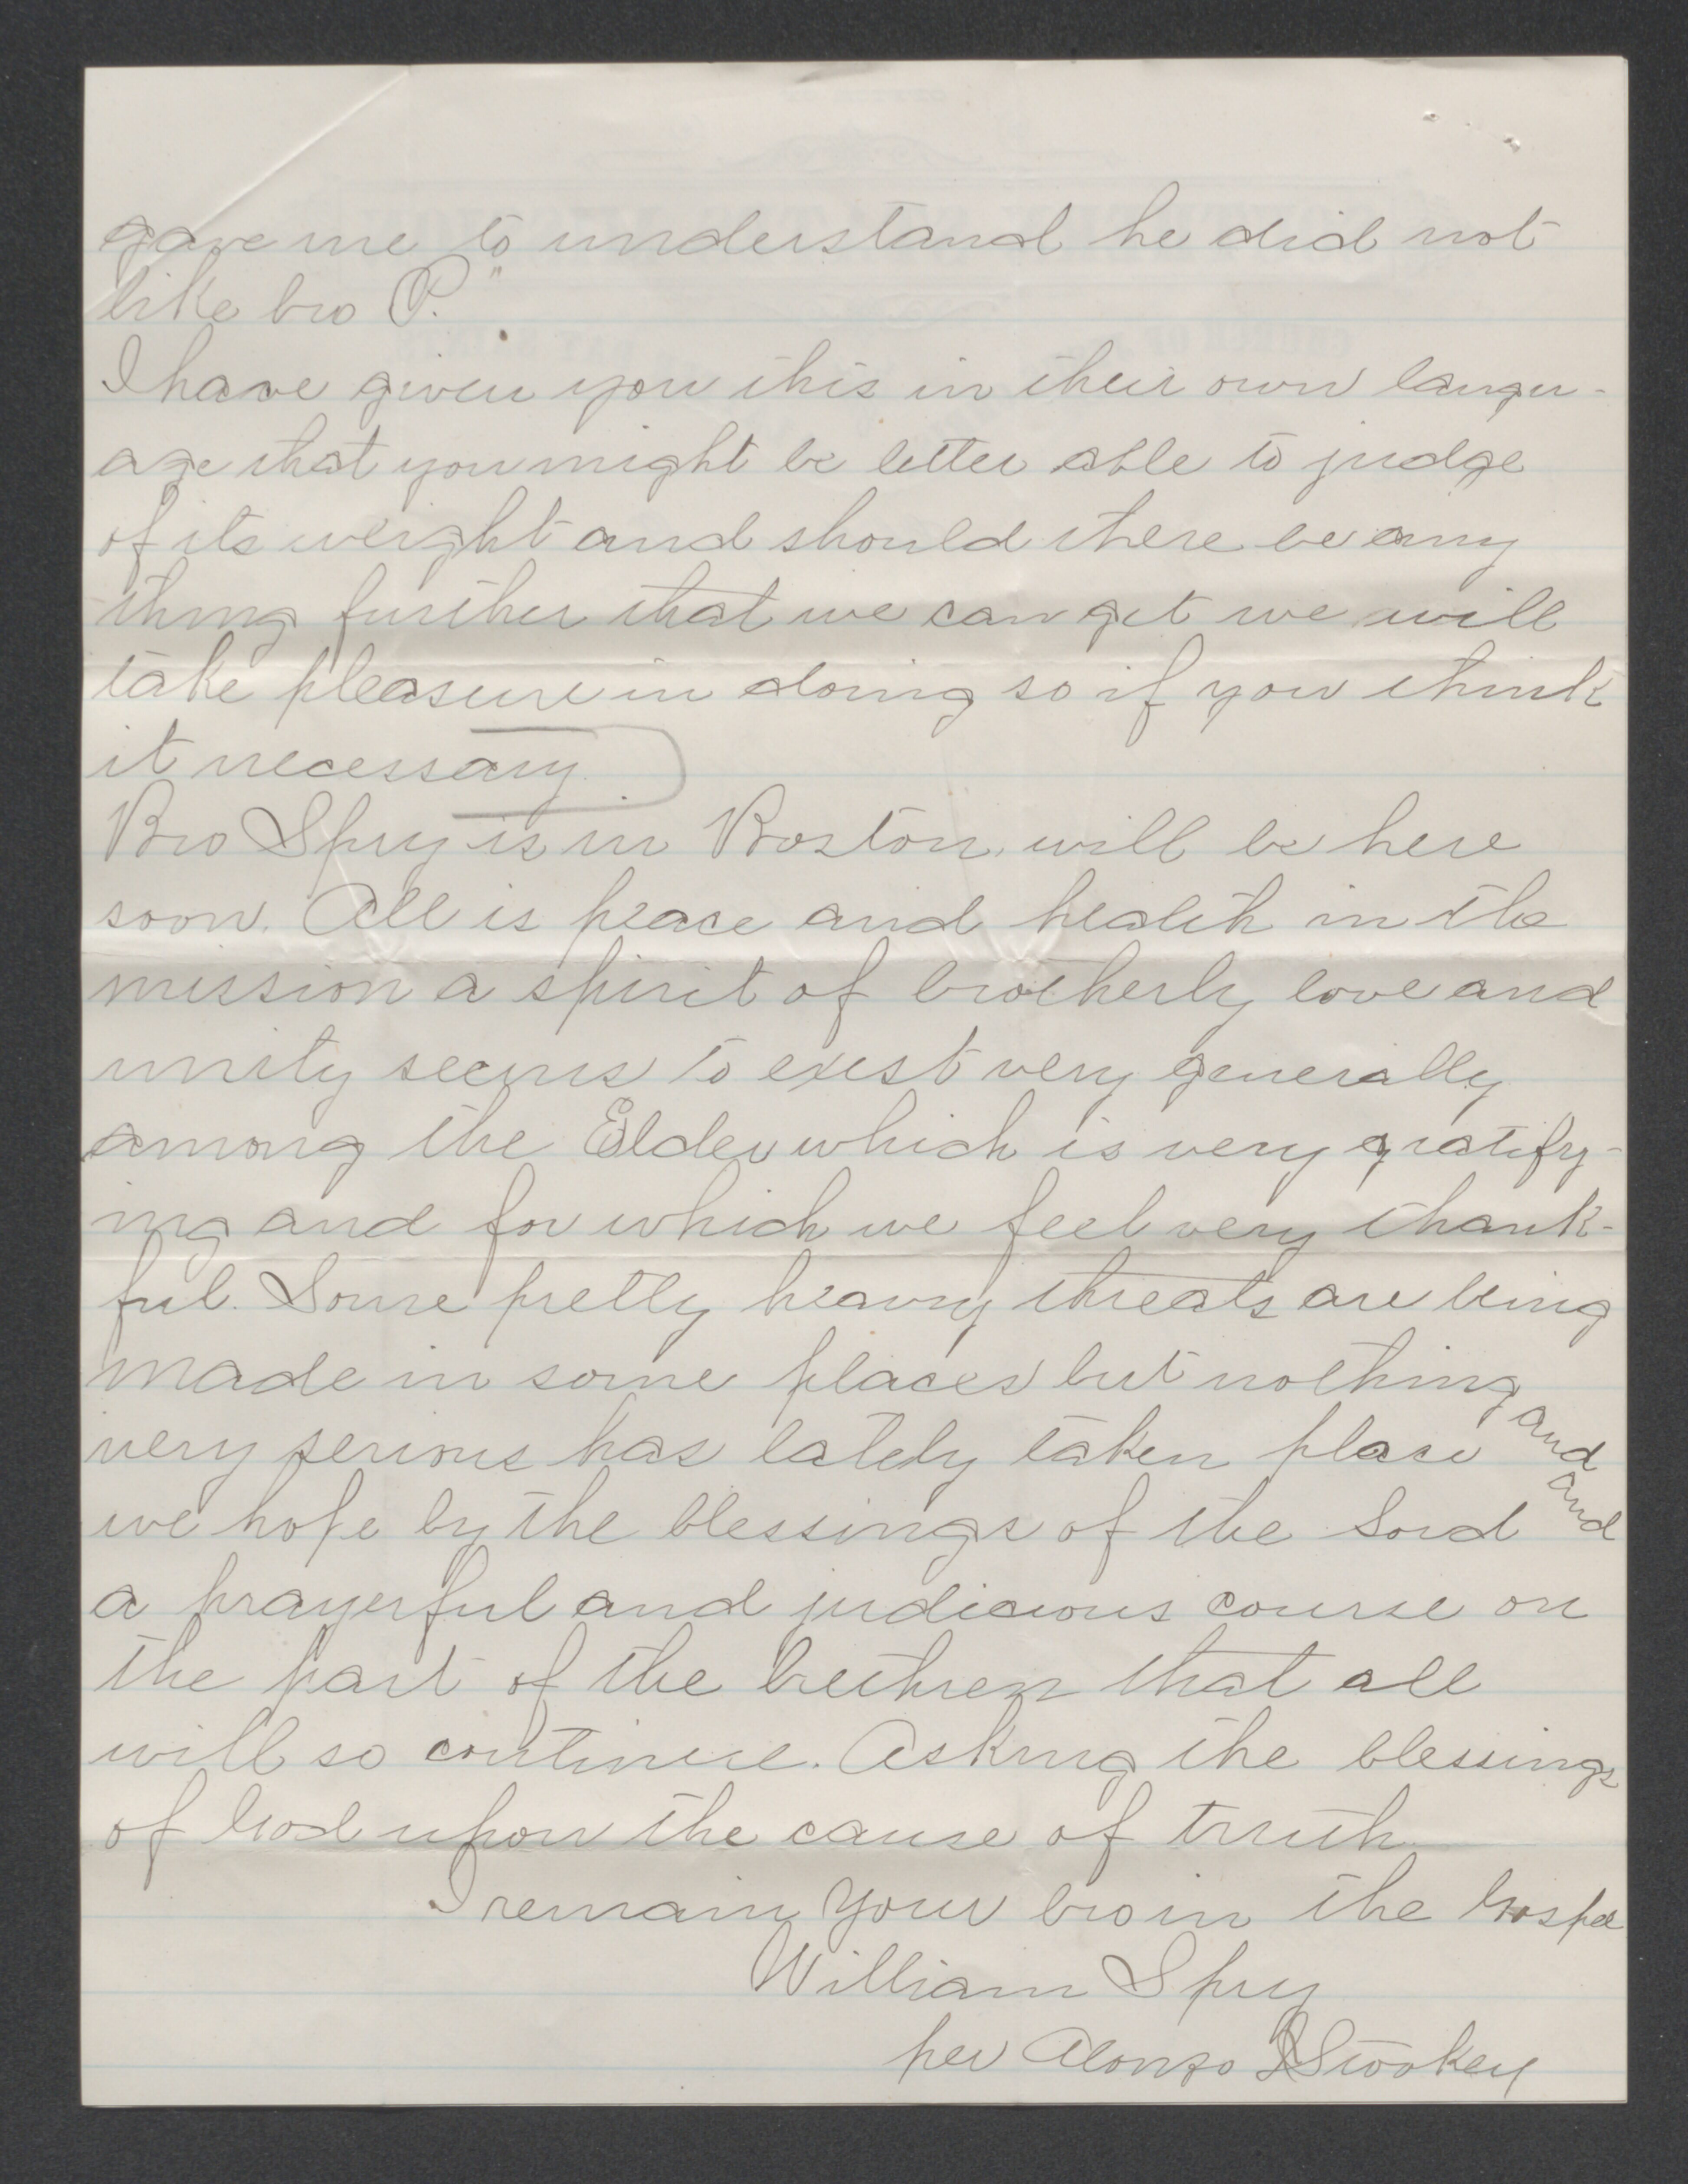 gave me to understand he did not
like bro P."
I have given you this in their own langu-
age that you might be better able to judge
of its weight and should there be any
thing further that we can get we will
take pleasure in doing so if you think
it necessary.
Bro Spry is in Boston, will be here
soon. All is peace and health in the
mission a spirit of brotherly love and
unity seems to exist very generally
among the Elders which is very gratify-
ing and for which we feel very thank-
ful. Some pretty heavy threats are being
made in some places but nothing
very serious has lately taken place and
we hope by the blessings of the Lord and
a prayerful and judicious course on
the part of the brethren that all
will so continue. Asking the blessings
of God upon the cause of truth
I remain Your bro in the Gospel
William Spry
per Alonzo J Stookey